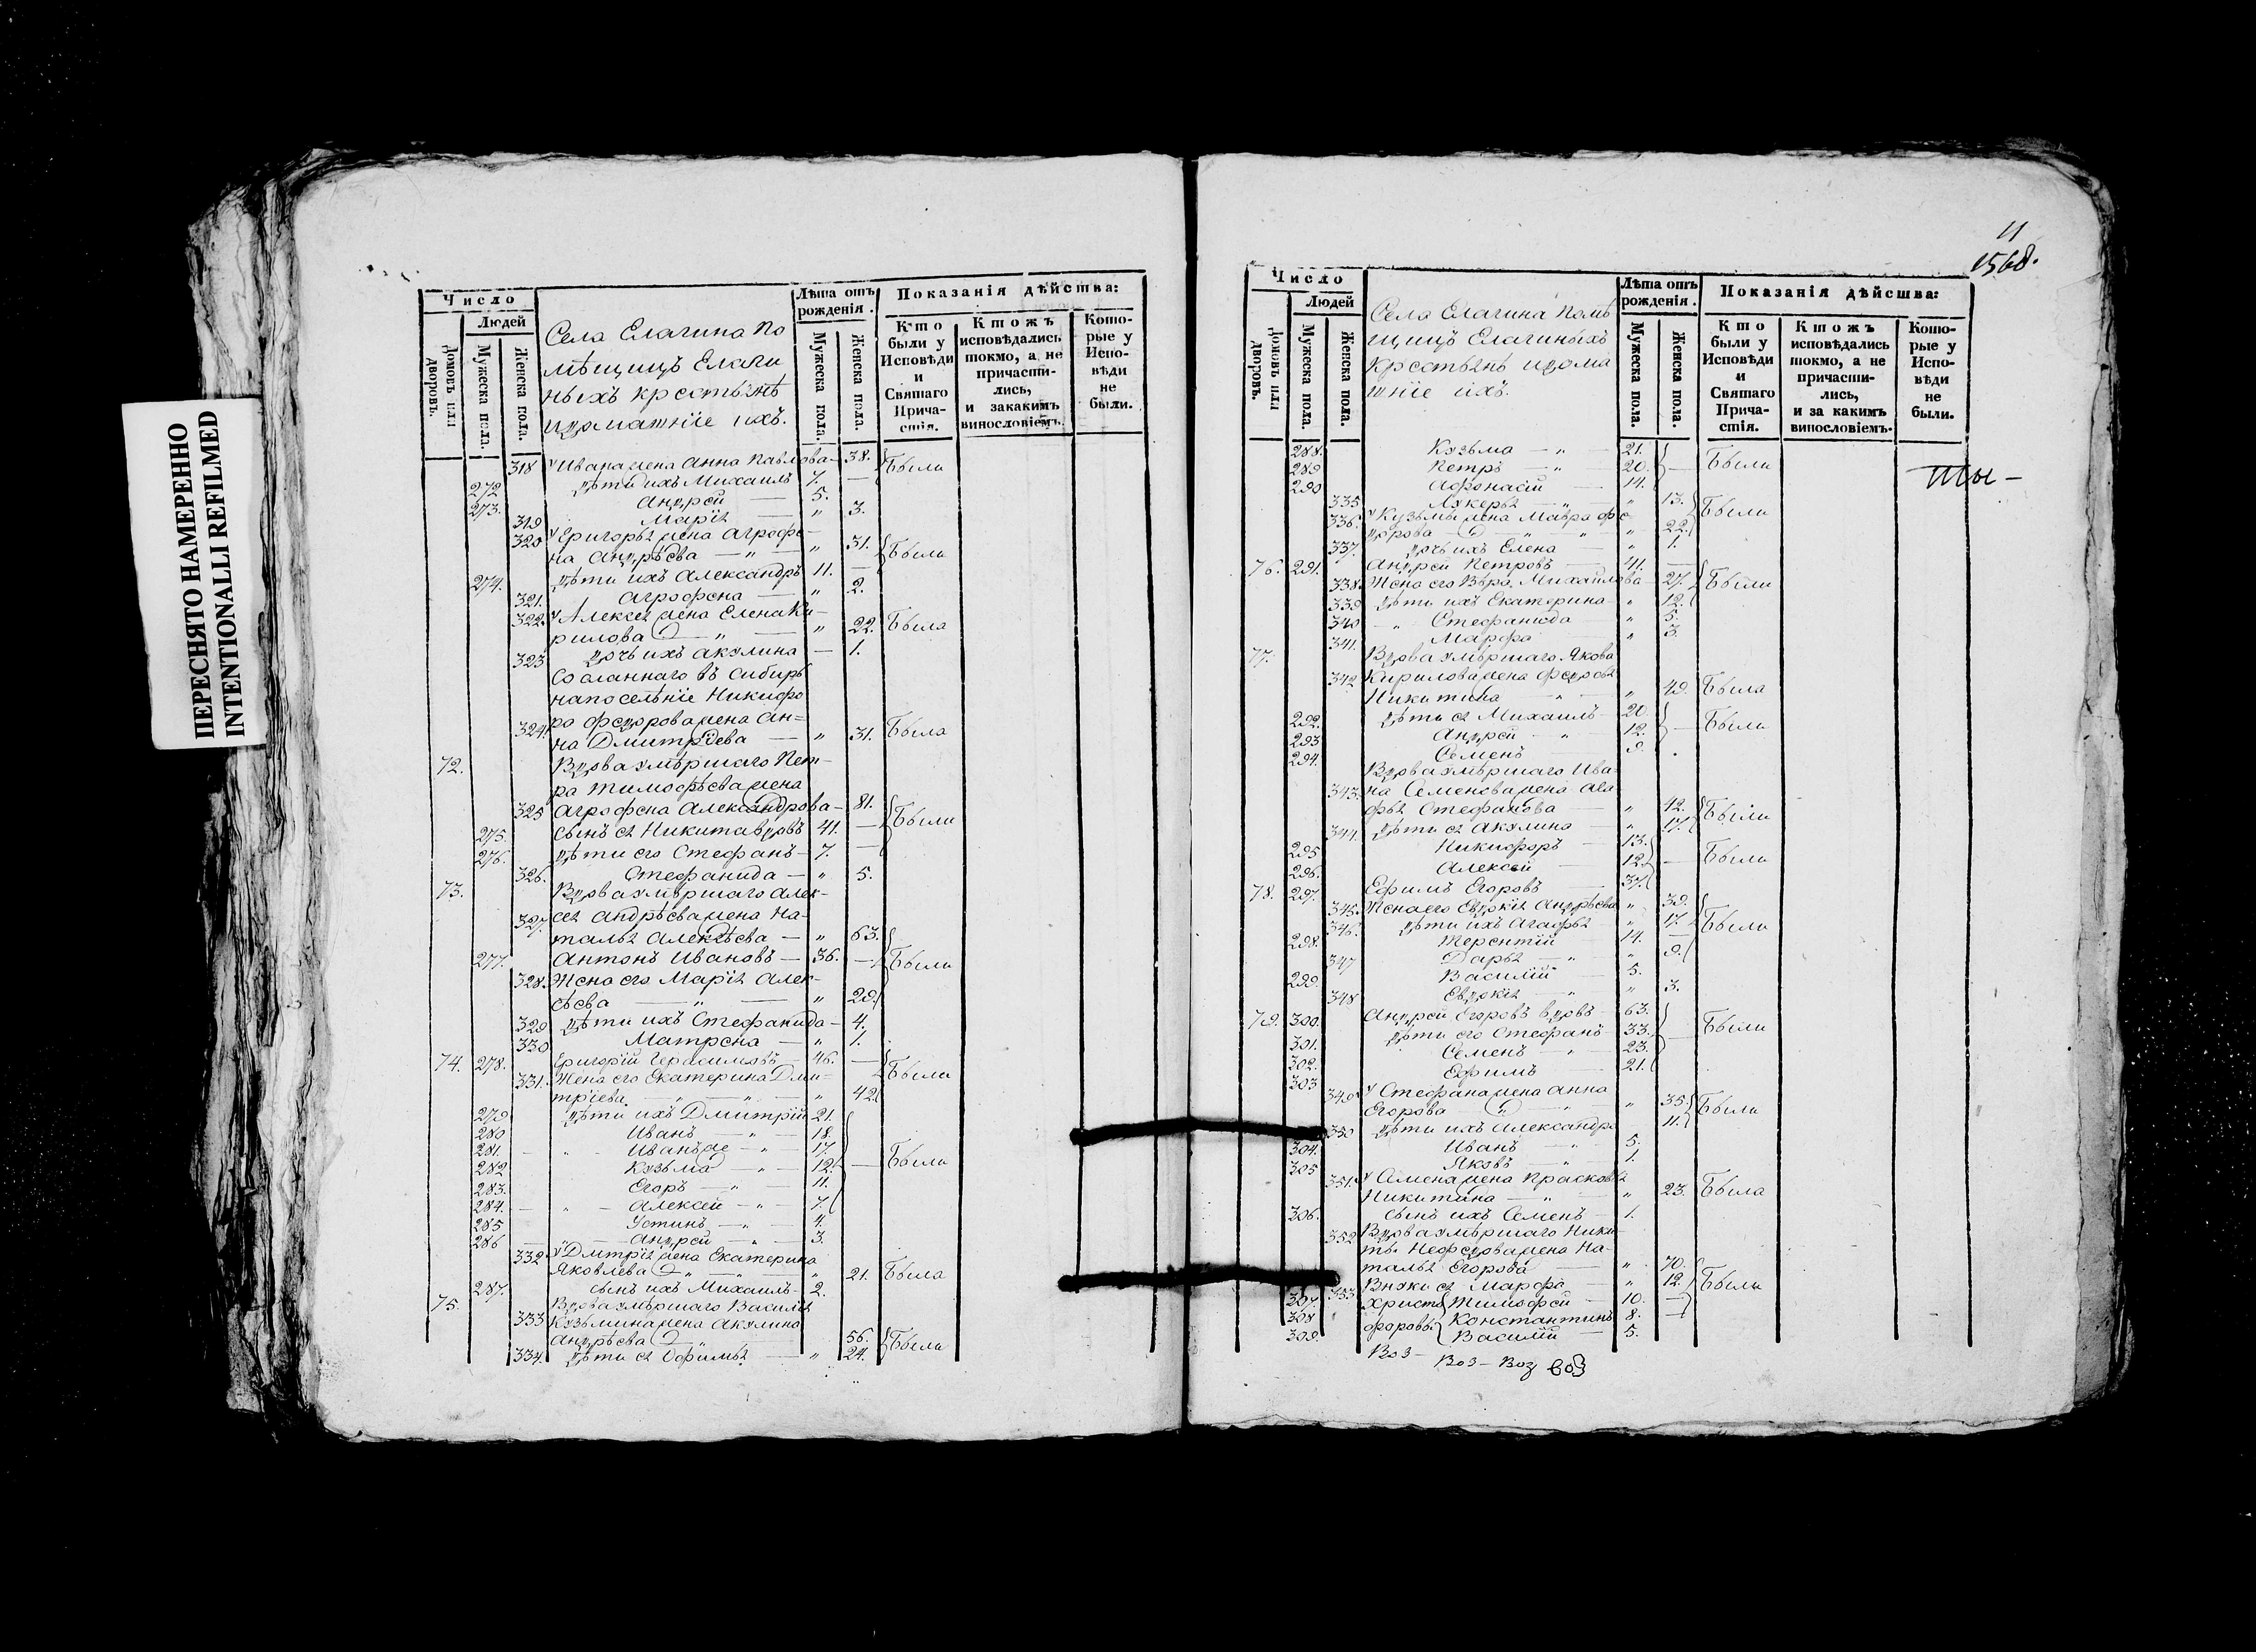 ПЕРЕСНЯТО НАМЕРЕННО
INTENTIONALLI REFILMED
Число
Людей
Домовъ или дворовъ.
Мужеска пола.
Женска пола.
Села Елагина по
мѣщицъ Елаги
ныхъ крестьянѣ
идоматніе ихъ.
Лѣта отъ рожденія.
Мужеска пола.
Женска пола.
Показанія дѣйства:
Кто были у Исповѣди и Святаго Прича-стія.
Ктожъ исповѣдались токмо, а не причасти-лись, и закакимъ винословіемъ
Кото-рые у Испо-вѣди не были.
318 у Ивана жена Анна Павлова — 38. Были
272 дѣти ихъ Михаилъ 7. —
273. Андрей — 5.
319 Марія — „ 3.
320 у Григорья жена Агрофе-
на Андрѣева — „ — „ 31. Была
274. дѣти ихъ Александръ 11. —
321. Агрофена — „ 2.
322. у Алексея жена Елена Ки-
рилова — „ — „ 22. Была
323 дочь ихъ Акулина — 1.
Сосланнаго въ Сибирь
напоселѣніе Никифо
324. ра Федорова жена Ан=
на Дмитрїева — „ 31. Была
72. Вдова умѣршаго Пет-
ра Тимофѣева жена
325 Агрофена Александрова — 81. Были
275. сынъ ея Никита вдовъ 41. —
276. дѣти его Стефанъ — 7. —
326. Стефанида — „ 5.
73. Вдова умѣршаго Алек-
327. сея Андрѣева жена На-
талья Алексѣева — „ 63.
277. Антонъ Ивановъ — 36. — Были
328. Жена его Марія Алек-
сѣева — „ — „ 29.
329 дѣти ихъ Стефанида — 4.
330 Матрена — „ 1.
74. 278. Григорій Герасимовъ — 46. —
331. Жена его Екатерина Дми= Были
тріева — „ — „ 42.
279 дѣти ихъ Дмитрій 21
280 Иванъ — „ — 18.
281. Иванъ же — „ — 17.
282 Кузьма — „ — 12. — Были
283. Егоръ — „ — 11.
284. Алексей — „ — 7.
285 Устинъ — „ — 4.
286 Андрей — „ — 3.
332 у Дмтрія жена Екатерина
Яковлева — „ — „ 21. Была
287. сынъ ихъ Михаилъ — 2.
75. Вдова умѣршаго Василія
333 Кузьмина жена Акулина
Андрѣева — „ 56. Были
334. дѣти ея Офимья — „ 24.
11
1568.
Число
Людей
Домовъ или дворовъ.
Мужеска пола.
Женска пола.
Села Елагина Помѣ
щицъ Елагиныхъ
Крестьянъ идома
тніе ихъ.
Лѣта отъ рожденія.
Мужеска пола.
Женска пола.
Показанія дѣйсшва:
Кто были у Исповѣди и Святаго Прича-стія.
Ктожъ исповѣдались токмо, а не причасти-лись, и за какимъ винословіемъ.
Кото-рые у Испо-вѣди не были.
288. Кузьма — „ — 21.
289 Петръ — „ 20. — Были
290 Афонасій — 14.
335 Лукерья — „ — „ 13.
336. у Кузьмы жена Мавра Фе- Были
дорова — „ — „ 22.
337. дочь ихъ Елена — „ 1.
76. 291. Андрей Петровъ — 41. —
338. Жена его Вѣра Михайлова 27. Были
339 дѣти ихъ Екатерина „ 12.
340 Стефанида „ 5.
341. Марфа „ 3.
77. Вдова умѣршаго Якова
342 Кирилова жена Федосья
Никитина — „ — „ 49. Была
292. дѣти ея Михаилъ 20.
293 Андрей — „ 12. — Были
294. Семенъ 9.
Вдова умѣршаго Ива-
343. на Семенова жена Ага
фья Стефанова — „ 42. Были
344. дѣти ея Акулина — „ 17.
295 Никифоръ — 13.
296. Алексей — 12. — Были
78. 297. Ефимъ Егоровъ — 37.
345. Жена его Евдокія Андрѣева „ 39.
346. дѣти ихъ Агафья — „ 17. Были
298. Терентій — 14. —
347 Дарья — „ — „ 9.
299. Василій — 5.
348 Евдокія — „ „ 3.
79. 300. Андрей Егоровъ вдовъ — 63.
301. дѣти его Стефанъ — 33. — Были
302. Семенъ — „ — 23.
303 Ефимъ — 21.
349 у Стефана жена Анна
Егорова — „ — „ — „ 35. Были
350 дѣти ихъ Александра 11.
304. Иванъ — 5.
305 Яковъ — „ 1.
351. у Семена жена Прасковья
Никитина — „ — „ 23. Была
306. сынъ ихъ Семенъ — 1.
352 Вдова умѣршаго Ники-
ты Нефедова жена На-
талья Егорова — „ 70.
353 Внуки ея Марфа — „ 12. Были
307. Христо Тимофей — 10. —
308 форовы Константинъ 8. —
309. Василій — 5.
ты —
Воз — Воз — Воз воз